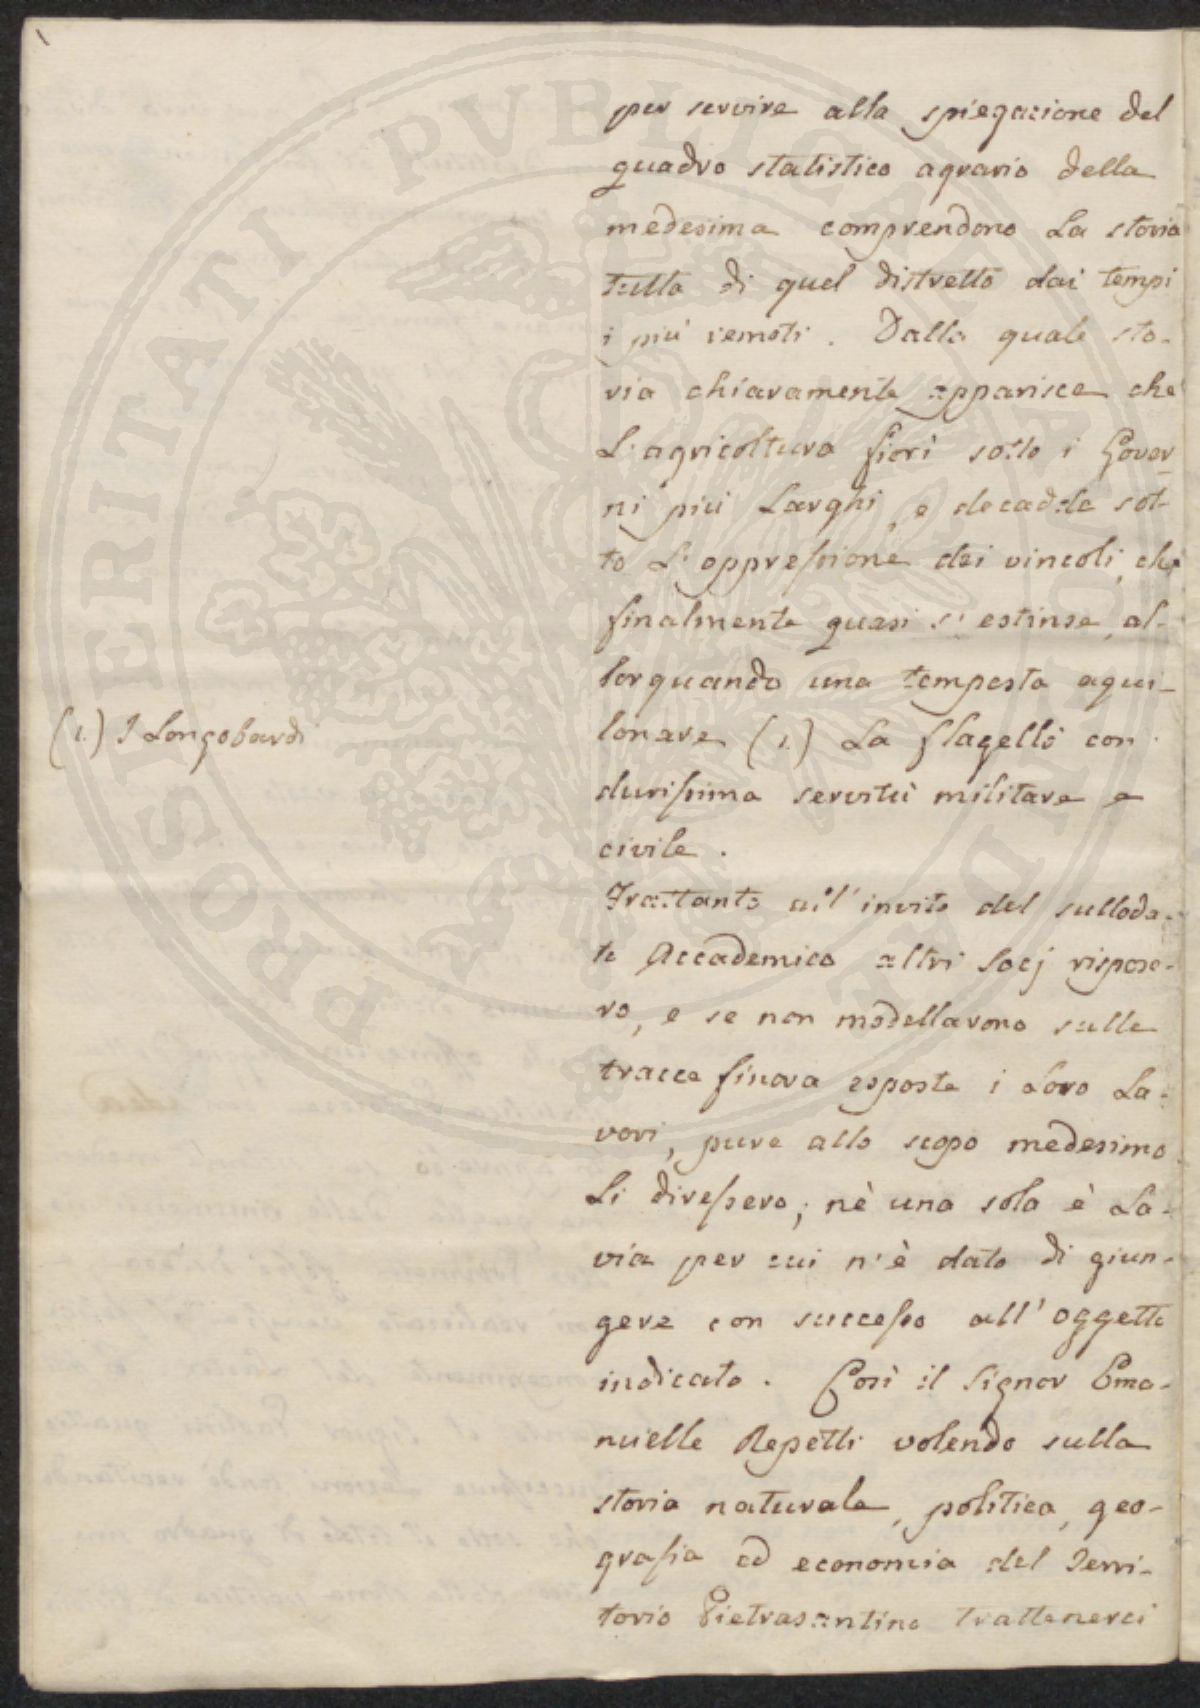 per servire alla spiegazione del
quadro statistico agrario della
medesima comprendono la storia
tutta di quel distretto dai tempi
i più remoti. Dalla quale sto-
ria chiaramente apparisce che
l'agricoltura fiorì sotto i Gover-
ni più larghi, e decadde sot-
to l'oppreſsione dei vincoli, che
finalmente quasi s'estinse, al-
lorquando una tempesta aqui-
lonare (1.) la flagellò con
duriſsima servitù militare e
civile.
(1.) I Longobardi
Frattanto all'invito del sulloda-
to Accademico altri Socj rispose-
ro, e se non modellarono sulle
tracce finora esposte i loro la-
vori, pure allo scopo medesimo
li direſsero; nè una sola è la
via per cui n'è dato di giun-
gere con succeſso all'oggetto
indicato. Così il Signor Ema-
nuelle Repetti volendo sulla
storia naturale, politica, geo-
grafia ed economia del Terri-
torio Pietrasantino trattenerci
PROSPERITATI PVBLICAE AVGENDAE